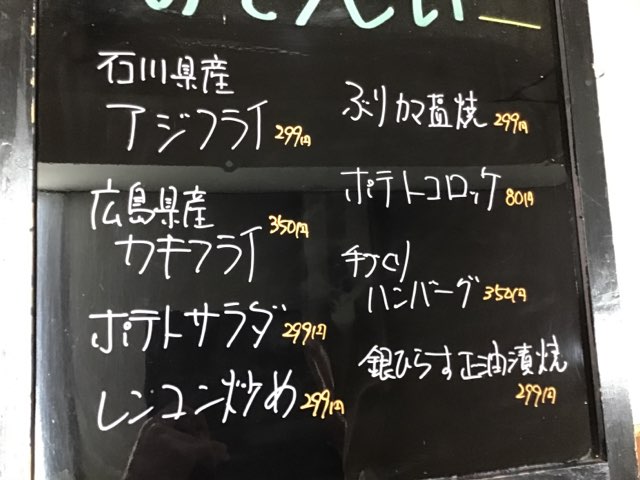 石川県産
アジフライ 299円
広島県産
カキフライ 350円
ポテトサラダ 299円
レンコン炒め 299円
ぶりカマ塩焼 299円
ポテトコロッケ 80円
手づくり
ハンバーグ 350円
銀ひらす正油漬焼
299円